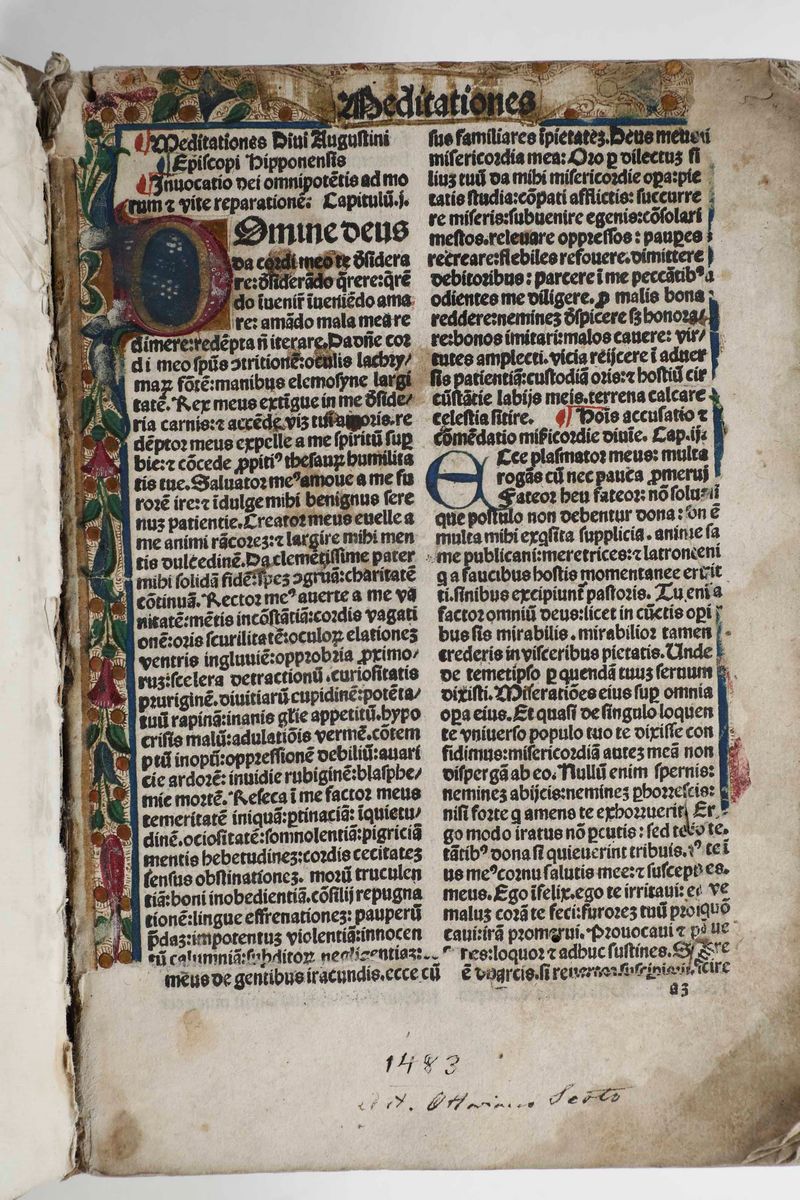 Meditationes
Meditationes Diui Augustini
Episcopi Hipponensis
Inuocatio dei omnipotētis ad mo
rum ⁊ vite reparationē: Capitulū.j.
Omine deus
da cordi meo te ꝺ̄sidera
re:ꝺ̄siderādo q̄rere:q̄rē
do īuenir̄ īueniēdo ama
re: amādo mala mea re
dimere:redēpta n̄ iterare.Da dn̄e cor
di meo spūs ↄtritionē:oculis lachry/
maꝝ fōtē:manibus elemosyne largi
tatē.Rex meus extīgue in me ꝺ̄side/
ria carnis:⁊ accēde viꝫ tui amoris.re
dēptor meus expelle a me spiritū suꝑ
bie:⁊ cōcede ꝓpitiꝰ thesauꝝ humilita
tis tue.Saluator meꝰ amoue a me fu
rorē ire:⁊ īdulge mihi benignus sere
nuꝫ patientie.Creator meus euelle a
me animi rācoreꝫ:⁊ largire mihi men
tis dulcedinē.Da clemētissime pater
mihi solidā fidē:speꝫ ↄgruā:charitatē
cōtinuā.Rector meꝰ auerte a me va
nitatē:mētis incōstātiā:cordis vagati
onē:oris scurilitatē:oculoꝝ elationeꝫ
ventris ingluuiē:opprobria ꝓximo/
ruꝫ:scelera detractionū.curiositatis
pruriginē.diuitiarū cupidinē:potēta/
tuū rapinā:inanis gl̄ie appetitū.hypo
crisis malū:adulatiōis vermē.cōtem
ptū inopū:oppressionē debiliū:auari
cie ardorē: inuidie rubiginē:blasphe/
mie mortē.Reseca ī me factor meus
temeritatē iniquā:ptinaciā: īquietu/
dinē.ociositatē:somnolentiā:pigriciā
mentis hebetudineꝫ:cordis cecitateꝫ
sensus obstinationeꝫ. morū truculen
tiā:boni inobedientiā.cōsilij repugna
tionē:lingue effrenationeꝫ: pauperū
p̄daꝫ:impotentuꝫ violentiā:innocen
tū calumniā:subditoꝝ negligentiaꝫ:
meus de gentibus iracundis.ecce cū
sus familiares īpietateꝫ.Deus meus
misericordia mea: Oro ꝑ dilectuꝫ fi
liuꝫ tuū da mihi misericordie oꝑa:pie
tatis studia:cōpati afflictis: succurre
re miseris:subuenire egenis:cōsolari
mestos.releuare oppressos: pauꝑes
recreare:flebiles refouere.dimittere
debitoribus: parcere ī me peccātibꝰ
odientes me diligere.ꝓ malis bona
reddere:nemineꝫ ꝺ̄spicere sꝫ honora/
re:bonos imitari:malos cauere: vir/
tutes amplecti.vicia reijcere ī aduer
sis patientiā:custodiā oris:⁊ hostiū cir
cūstātie labijs meis.terrena calcare
celestia sitire. Hoīs accusatio ⁊
cōmēdatio mīẜicordie diuīe. Cap.ij.
Cce plasmator meus: multa
rogās cū nec pauca ꝓmerui
Fateor heu fateor: nō soluꝫ
que postulo non debentur dona: ē
multa mihi exq̄sita supplicia. anime sa
me publicani:meretrices:⁊ latrones
q a faucibus hostis momentanee eruti
ti.sinibus excipiunt̄ pastoris. Tu eni
factor omniū deus:licet in cūctis oꝑi
bus sis mirabilis.mirabilior tamen
crederis in visceribus pietatis.Unde
de temetipso ꝑ quendā tuuꝫ seruum
dixisti.Miseratiōes eius suꝑ omnia
oꝑa eius.Et quasi de singulo loquen
te vniuerso populo tuo te dixisse con
fidimus:misericordiā auteꝫ meā non
dispergā ab eo.Nullū enim spernis:
nemineꝫ abijcis:nemineꝫ ꝑhorrescis:
nisi forte q amens te exhorruerit. Er
go modo iratus nō ꝑcutis: sed te.
tātibꝰ dona si quieuerint tribuis. te ī
us meꝰ cornu salutis mee:⁊ suscept es.
meus. Ego īfelix.ego te irritaui: ve
maluꝫ corā te feci:furoreꝫ tuū
caui:irā promerui. Prouocaui ⁊
res:loquor ⁊ adhuc sustines.
ē parcis.si
a3
1483
Ottaviano Scoto